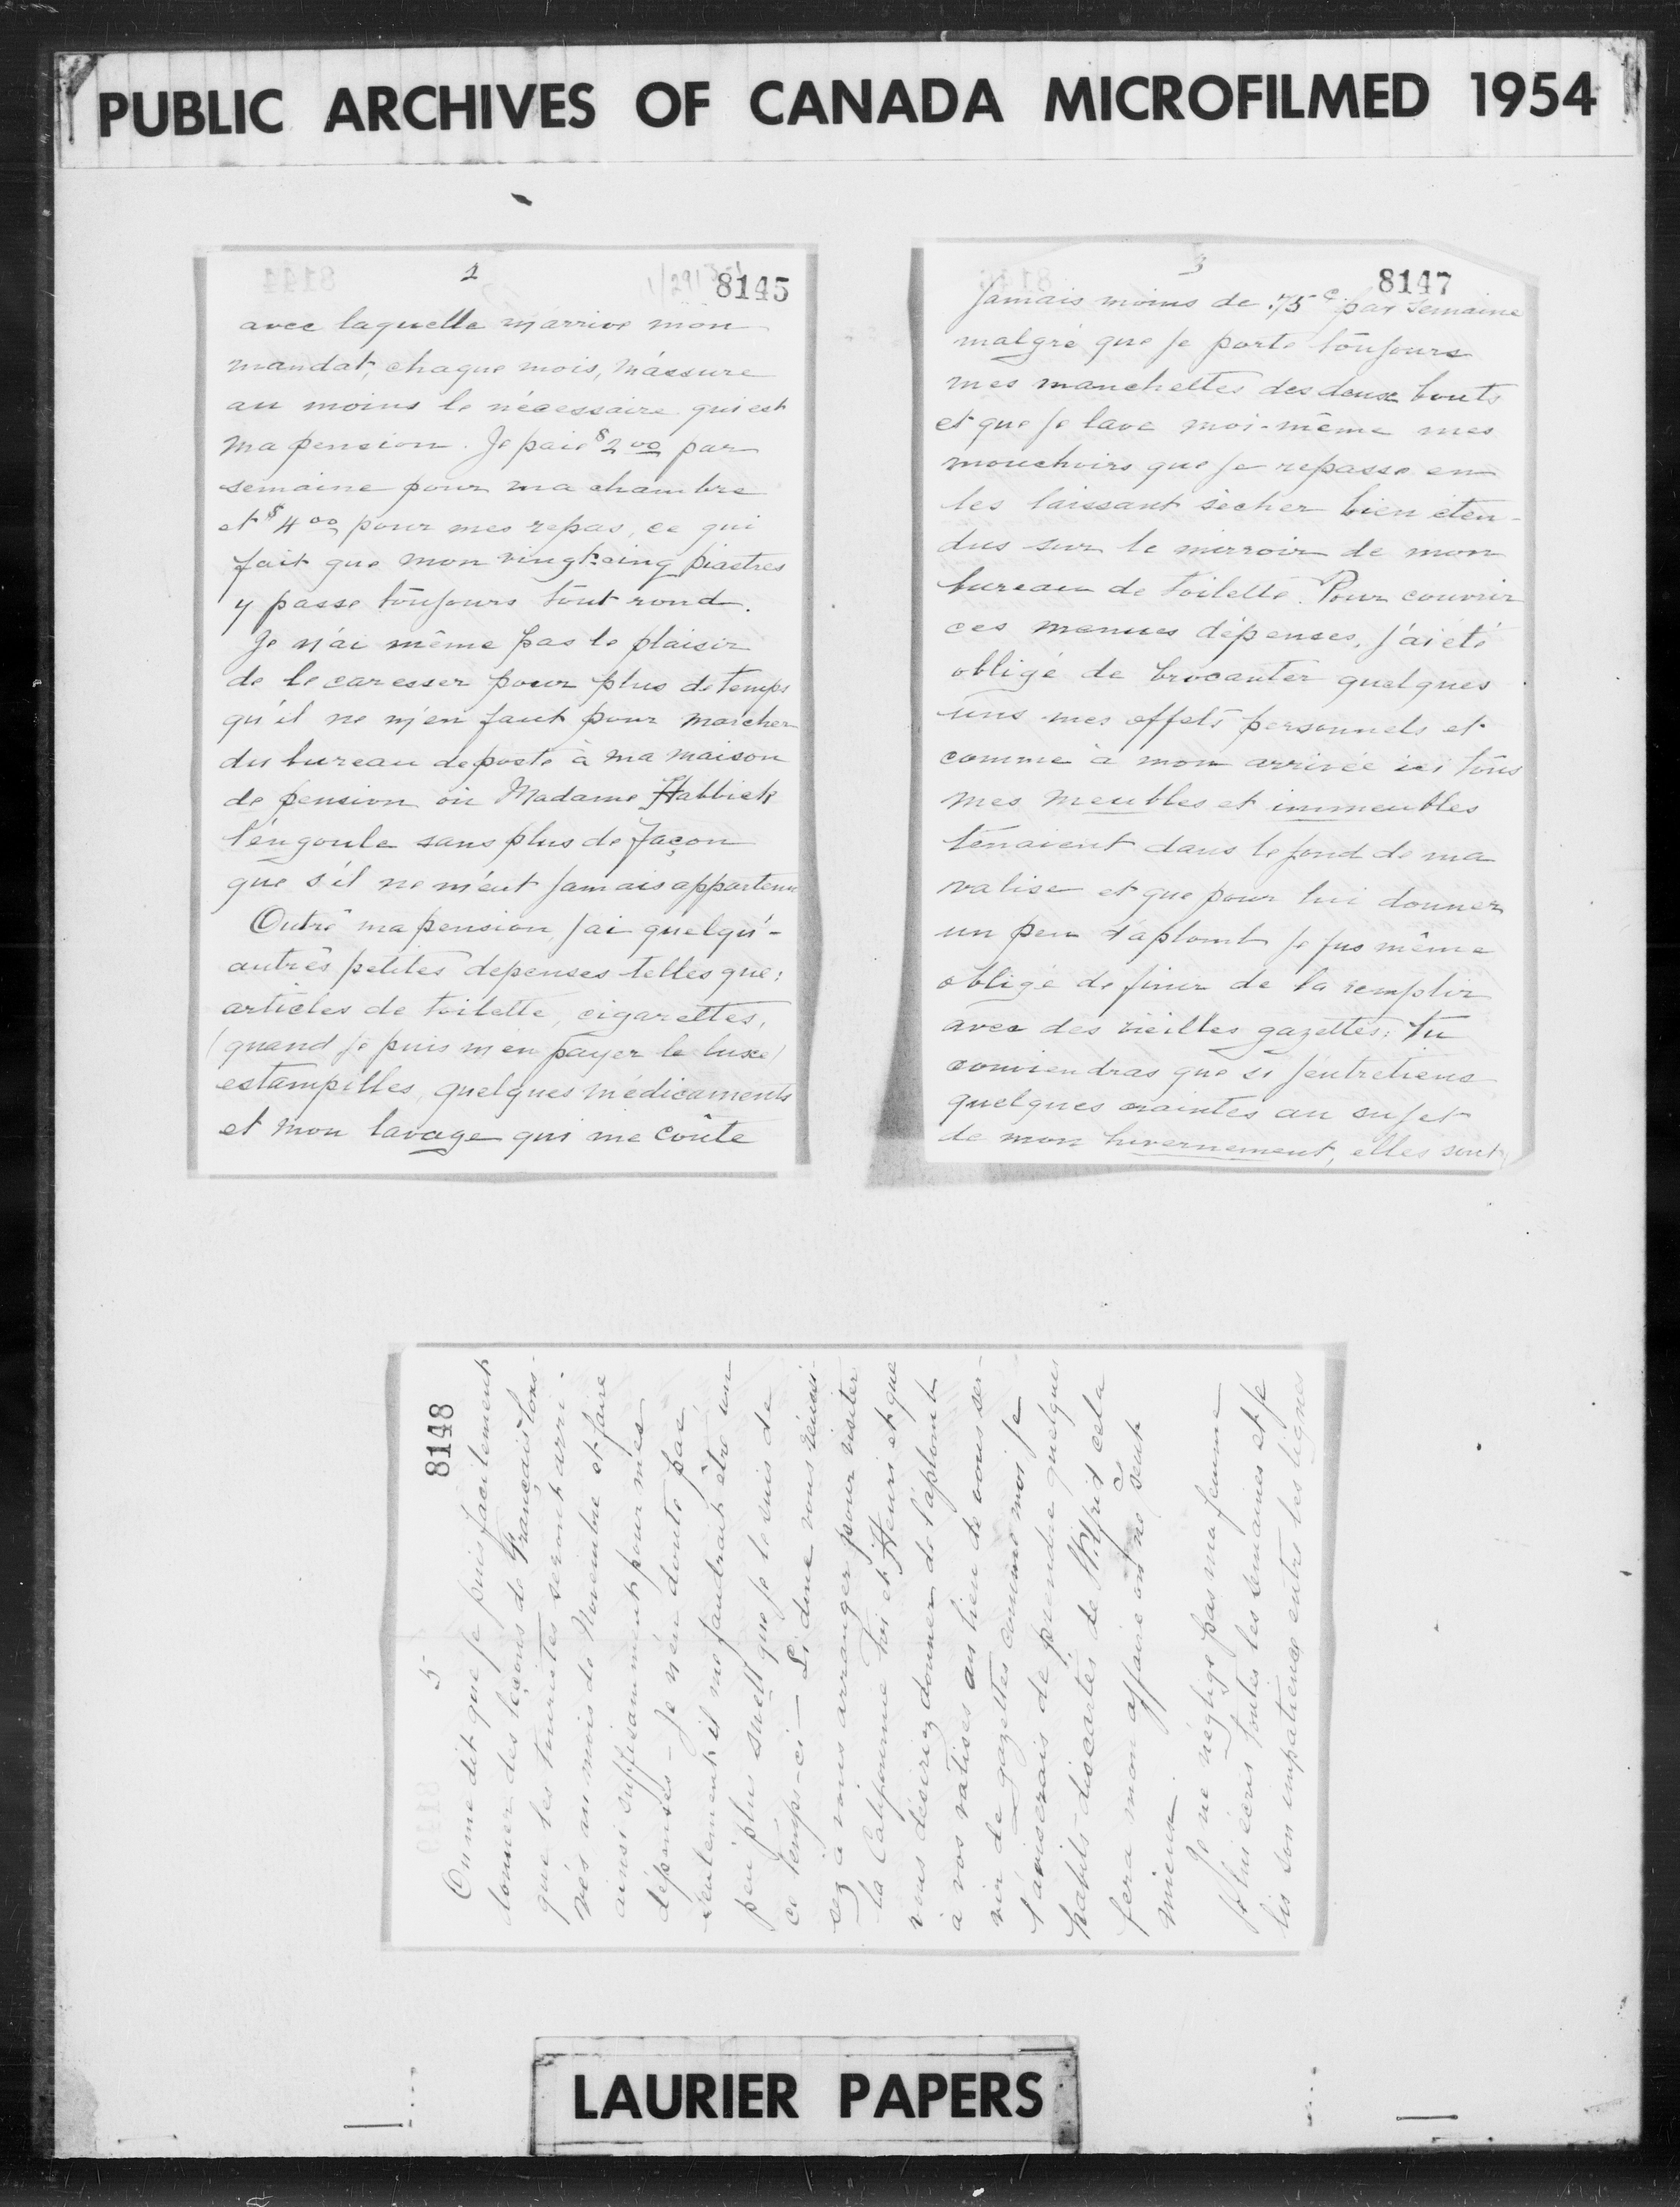 PUBLIC ARCHIVES OF CANADA MICROFILMED 1954
2
8145
avec laquelle m'arrive mon
mandat, chaque mois, m'assure
au moins le nécessaire qui est
ma pension. Je paie $2.00 par
semaine pour ma chambre
et $4.00 pour mes repas, ce qui
fait que mon vingt-cinq piastres
y passe toujours tout rond.
Je n'ai même pas le plaisir
de le caresser pour plus de temps
qu'il ne m'en faut pour marcher
du bureau de poste à ma maison
de pension où Madame Habbick
l'engoule sans plus de façon
que s'il ne m'eut jamais appartenu
Outre ma pension, j'ai quelqu'-
autres petites depenses telles que:
articles de toilette, cigarettes,
(quand je puis m'en payer le luxe)
estampilles, quelques médicaments
et mon lavage qui me coûte
3
8147
jamais moins de .75c par semaine
malgré que je porte toujours
mes manchettes des deux bouts
et que je lave moi-même mes
mouchoirs que je repasse en
les laissant sécher bien éten-
dus sur le mirroir de mon
bureau de toilette. Pour couvrir
ces menues dépenses, j'ai été
obligé de brocanter quelques
uns mes effets personnels et
comme à mon arrivée ici tous
mes meubles et immeubles
tenaient dans le fond de ma
valise et que pour lui donner
un peu d'aplomb je fus même
obligé de finir de la remplir
avec des vieilles gazettes: tu
conviendras que si j'entretiens
quelques craintes au sujet
de mon hivernement, elles sont
8148
5
On me dit que je puis facilement
donner des leçons de Français lors-
que les touristes seront arri-
vés au mois de Novembre et faire
ainsi suffisamment pour mes
dépenses - Je n'en doute pas,
seulement il me faudrait être un
peu plus swell que je le suis de
ce temps-ci — Si donc vous réussis-
sez à vous arranger pour visiter
la Californie toi et Henri et que
vous désiriez donner de l'aplomb
à vos valises au lieu de vous ser-
vir de gazettes comme moi je
t'aviserais de prendre quelques
habits discartés de Wilfrid cela
fera mon affaire on ne peut
mieux.
Je ne néglige pas ma femme
je lui écris toutes les semaines et je
lis son impatience entre les lignes
LAURIER PAPERS